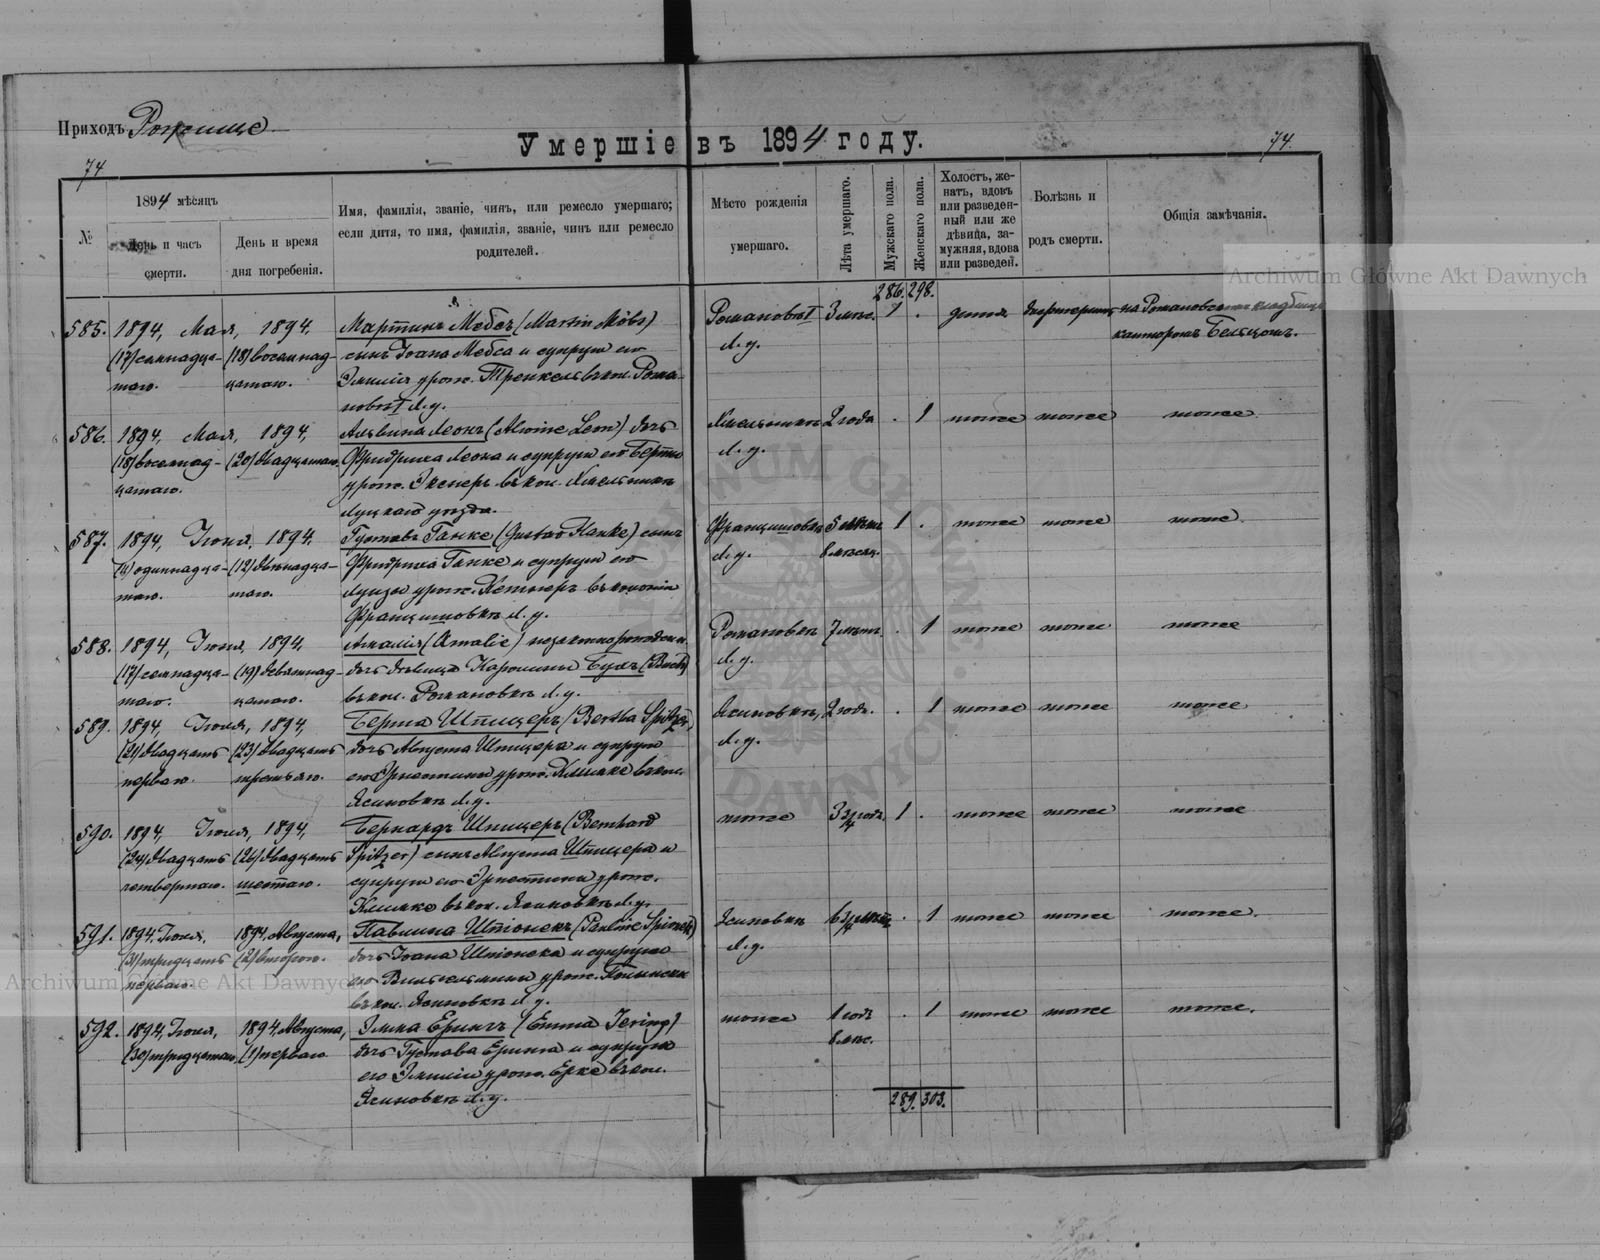 Приходъ Рожище
Умершіе въ 1894 году.
74
74.
№
1894 мѣсяцъ
День и часъ
смерти.
День и время
дня погребенія.
Имя, фамилія, званіе, чинъ, или ремесло умершаго;
если дитя, то имя, фамилія, званіе, чинъ или ремесло
родителей.
Мѣсто рожденія
умершаго.
Лѣта умершаго.
Мужскаго пола.
Женскаго пола.
Холостъ, же-
натъ, вдовъ
или разведен-
ный или же
дѣвица, за-
мужняя, вдова
или разведен.
Болѣзнь и
родъ смерти.
Общія замѣчанія.
286. 298.
585. 1894, Мая, 1894. Мартинъ Мебсъ (Martin Möbs) Романовъ I 3 мѣс. 1 . дитя на Романовскомъ кладбищѣ
(17) семнадца- (18) восемнад- сынъ Іоана Мебса и супруги его Л. у. канторомъ
таго. цатаго. Эмиліи урож. Тренкель въ кол. Рома-
новъ I Л. у.
586. 1894, Мая, 1894, Альвина Леонъ (Alwine Leon) дочь Хмельники 2 года . 1 тоже тоже тоже
(18) восемнад- (20) двадцатаго. Фридриха Леона и супруги его Берты Л. у.
цатаго. урож. въ кол. Хмельники
Луцкаго уѣзда.
587. 1894, Іюня, 1894. Густавъ Ганке (Gustav Hanke) сынъ Францишовка 5 лѣтъ 1 . тоже тоже тоже.
(11) одиннадца- (12) двѣнадца- Фридриха Ганке и супруги его Л. у. 8 мѣсяц.
таго. таго. Луизы урож. въ колоніи
Францишовкѣ Л. у.
588. 1894, Іюня, 1894. Амалія (Amalie) незаконнорожденн. Романовка 7 лѣтъ . 1 тоже тоже тоже
(17) семнадца- (19) девятнад- дочь дѣвицы Каролины Бухъ (Buch) Л. у.
таго. цатаго. въ кол. Романовкѣ Л. у.
589. 1894, Іюля, 1894, Берта Шпицеръ (Bertha Spitzer) Ясиновка, 2 года. . 1 тоже тоже тоже
(21) двадцать (23) двадцать дочь Августа Шпицера и супруги Л. у.
перваго. третьяго. его Эрнестины урож. Климке въ кол.
Ясиновкѣ Л. у.
590. 1894, Іюля, 1894, Бернардъ Шпицеръ (Bernhard тоже 3 3/4 года. 1 . тоже тоже тоже
(24) двадцать (26) двадцать Spitzer) сынъ Августа Шпицера и
четвертаго. шестаго. супруги его Эрнестины урож.
Климке въ кол. Ясиновкѣ Л. у.
591. 1894, Іюля, 1894, Августа, Павлина Шпіонекъ (Pauline Spionek) Ясиновка 6 3/4 . 1 тоже тоже тоже.
(31) тридцать (2) втораго. дочь Іоана Шпіонека и супруги Л. у.
перваго. его Вильгельмины урож.
въ кол. Ясиновкѣ Л. у.
592. 1894, Іюля, 1894, Августа, Эмма Ерингъ (Emma Jering) тоже 1 годъ . 1 тоже тоже тоже.
(30) тридцатаго (1) перваго дочь Густава Еринга и супруги 8 мѣс.
его Эмиліи урож. Ерке въ кол.
Ясиновкѣ Л. у.
289. 303.
Archiwum Główne Akt Dawnych
Archiwum Główne Akt Dawnych